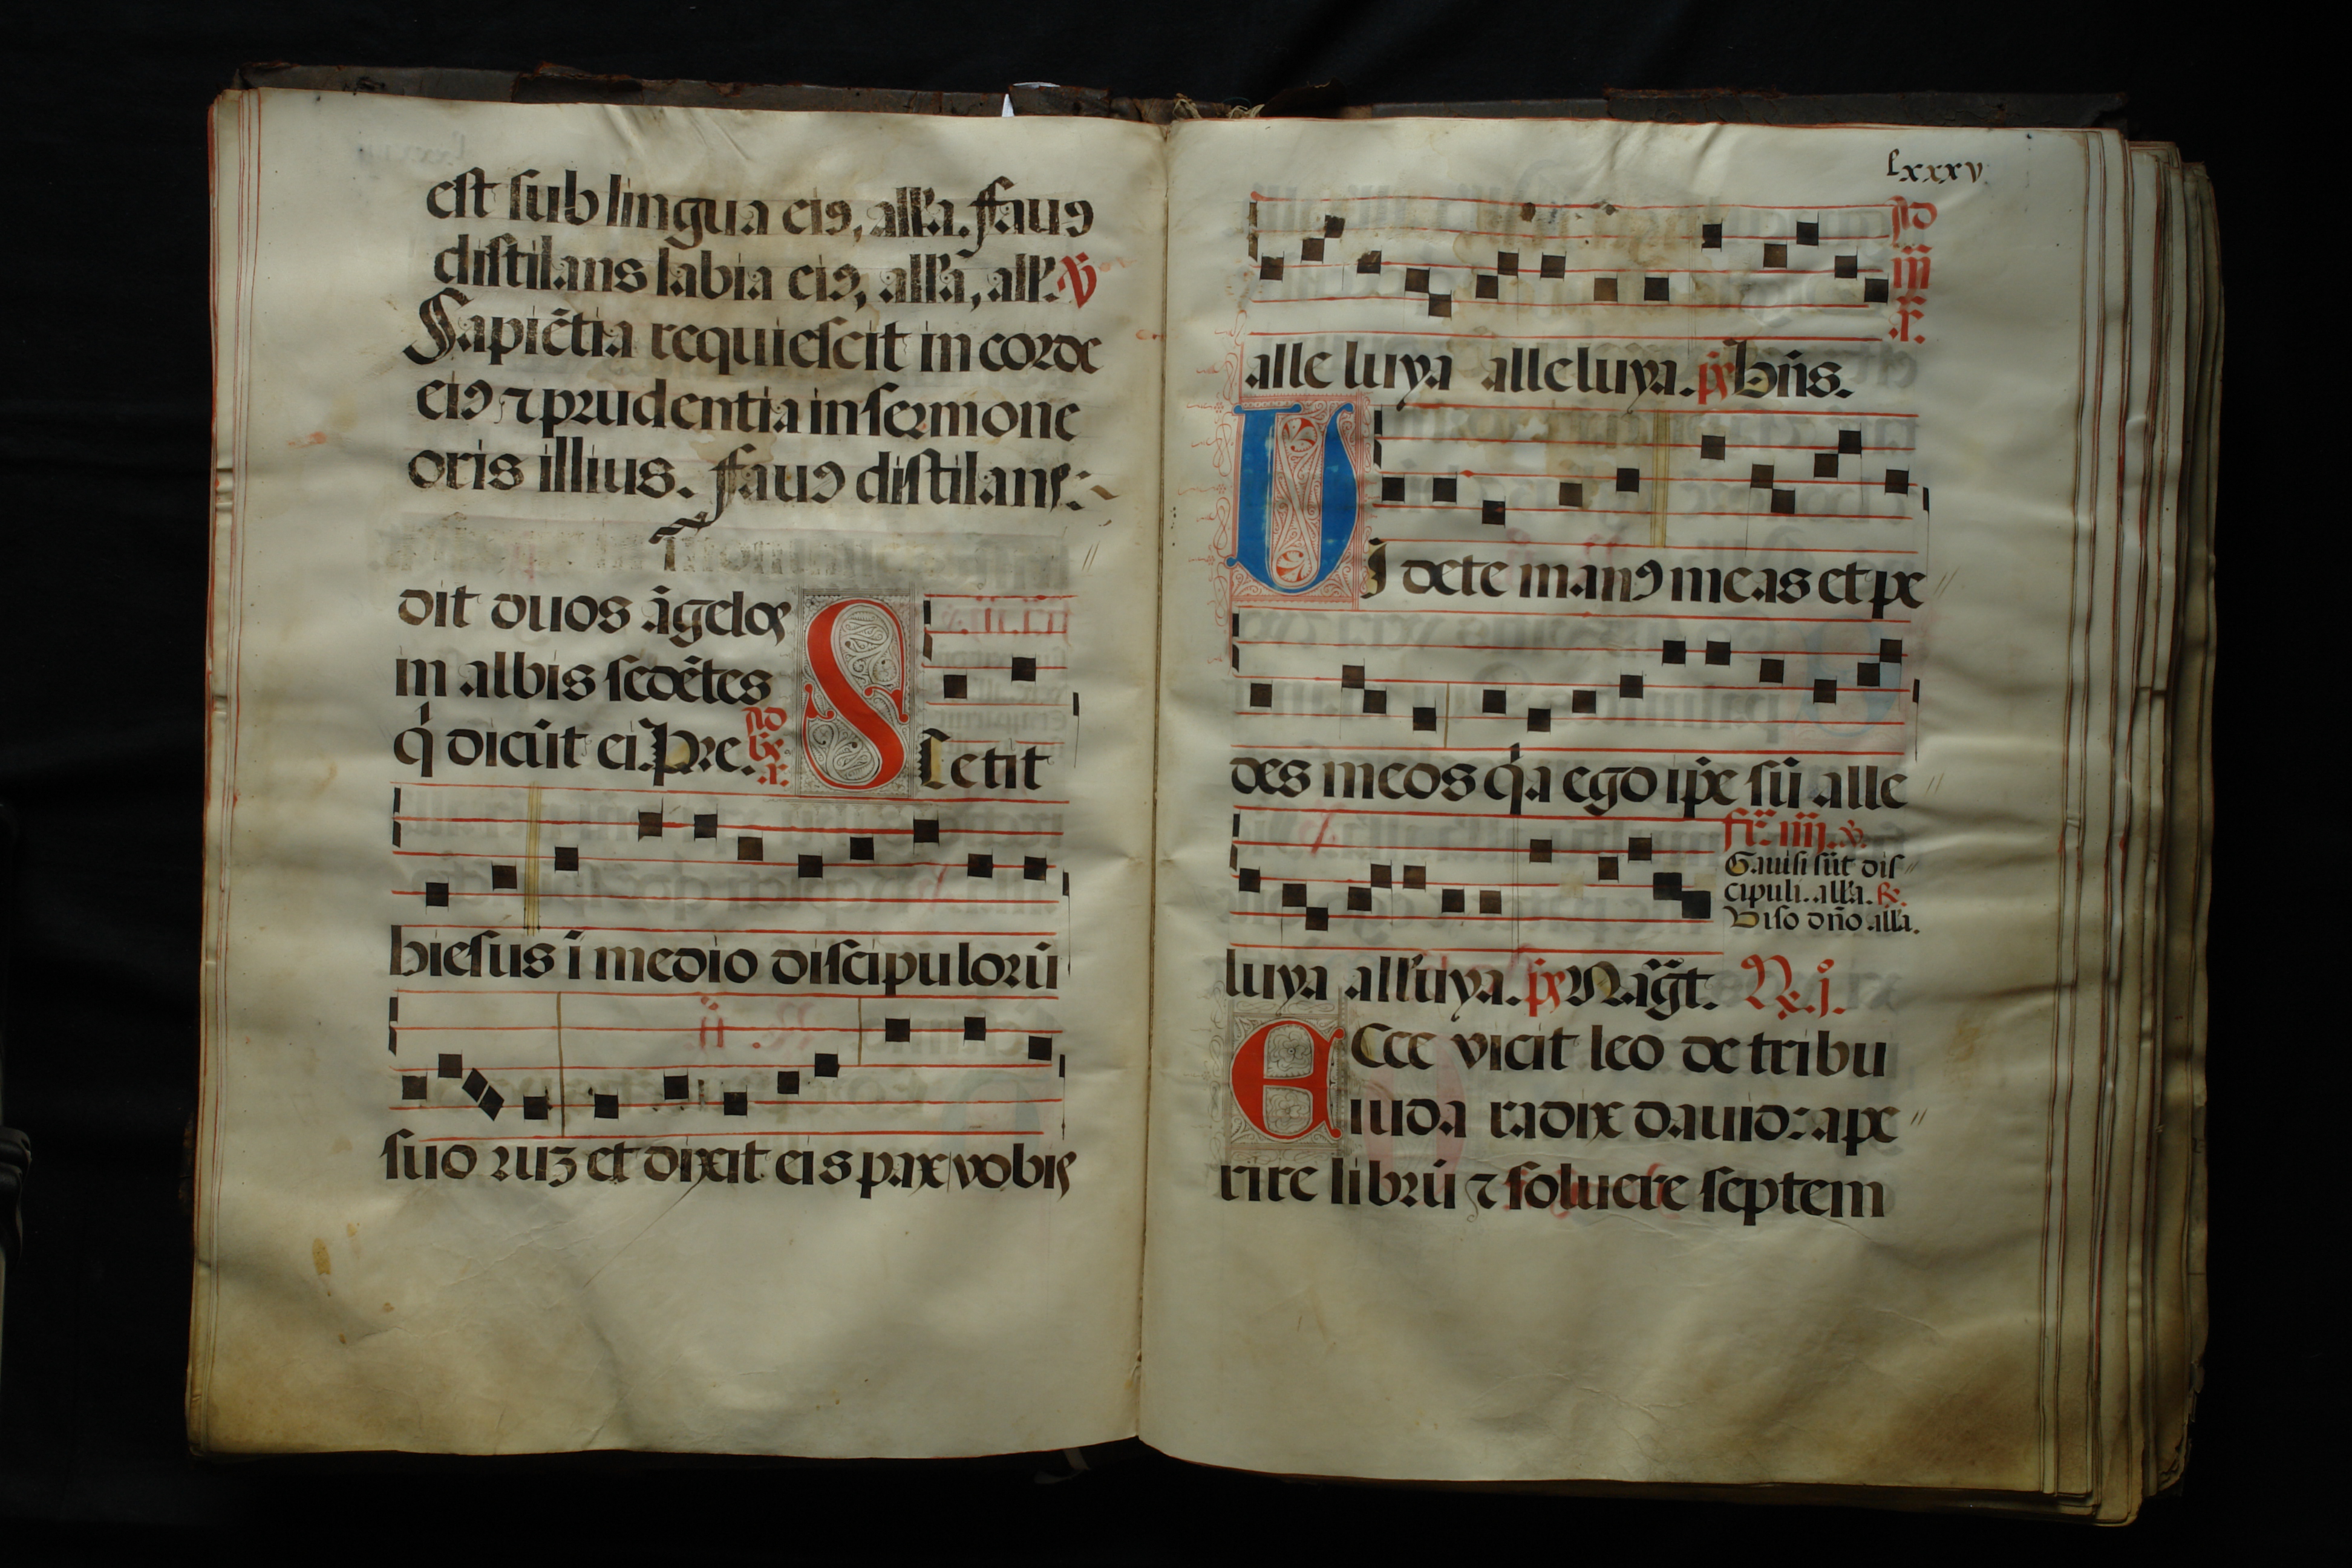 est sub lingua eiꝰ, all'a. ffauꝰ
distilans labia eiꝰ, all'a, all'. ℣
Sapiẽtia requiescit in corde
eiꝰ ⁊ prudentia in sermone
oris illius. ffauꝰ distilans:
dit duos ãgelos
in albis sedẽtes
q̓ dicũt ei. Pre.
S Tetit
hiesus ĩ medio discipulorũ
suo ruꝫ et dixit eis pax vobis
lxxxv
alle luya alleluya. ps Bñs.
V I dete manꝰ meas et pe
des meos q̓a ego ip̃e sũ alle
fr̃ iiij. ℣.
Gauisi sũt dis
cipuli. all'a. ℟.
Viso dño all'a.
luya all'uya. ps Mag̃t. ℟. j.
E Cce vicit leo de tribu
iuda radix dauid: ape
rire librũ ⁊ soluere septem